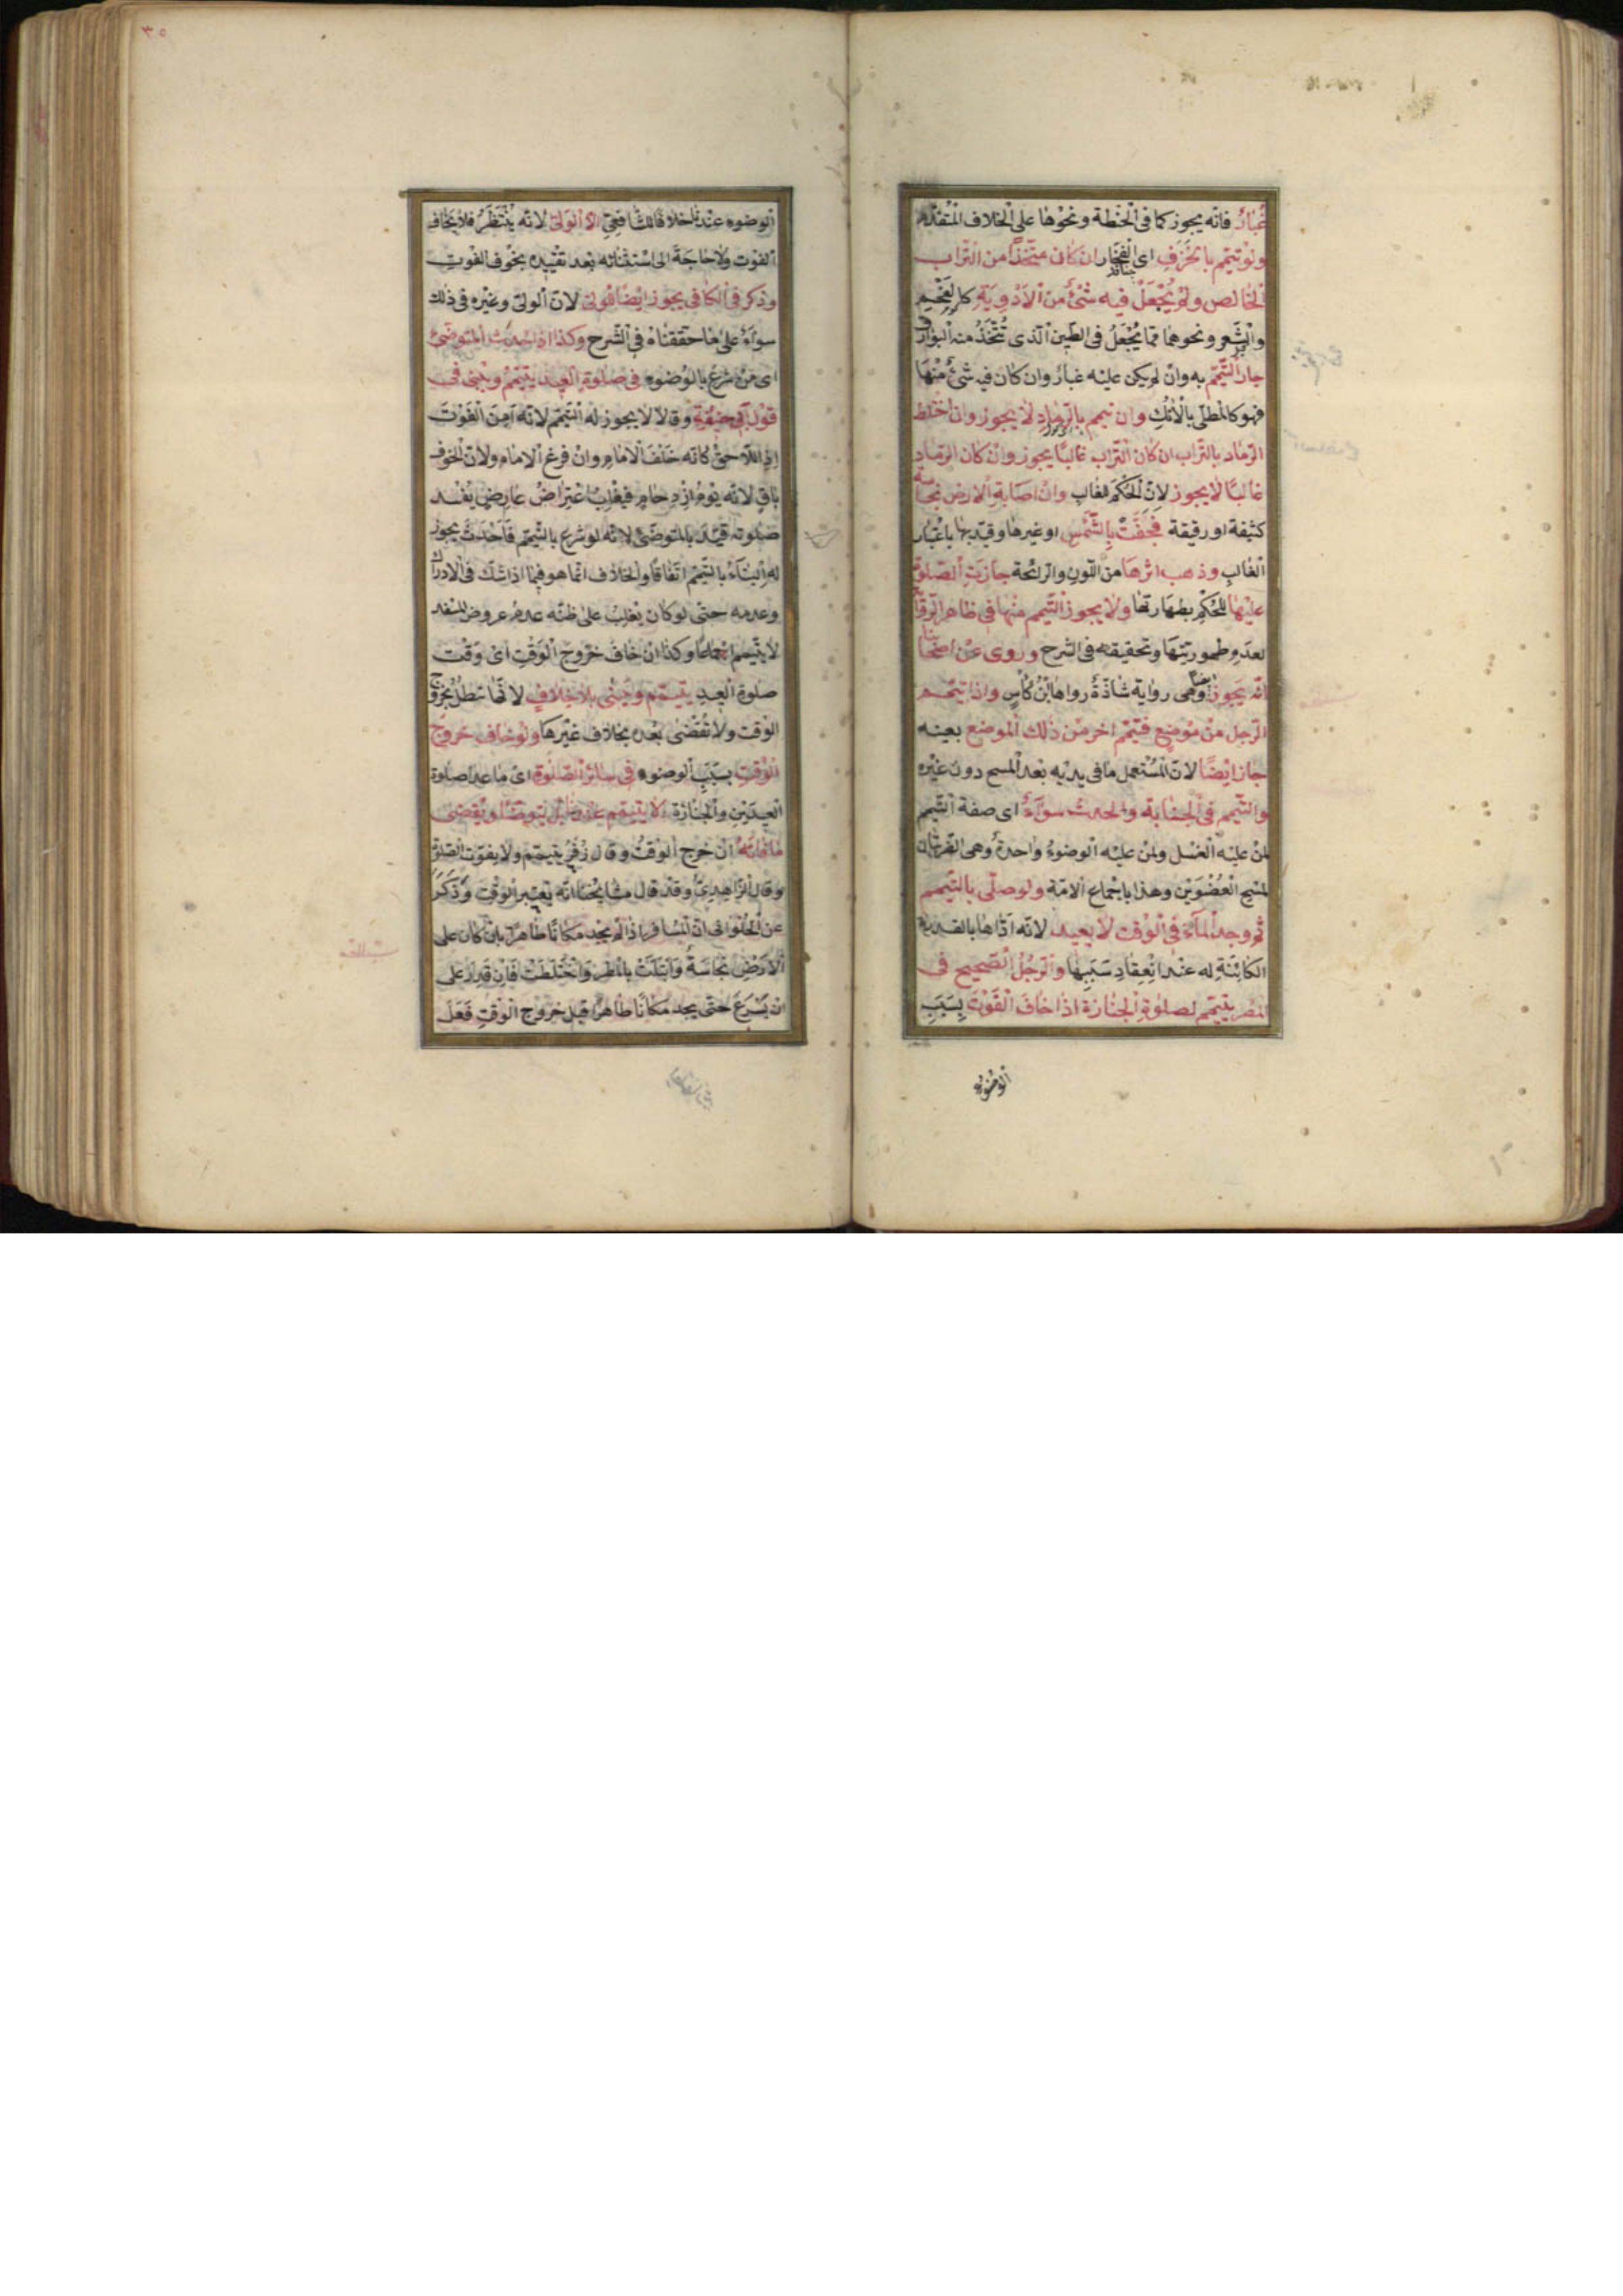 غُبَارٌ فانّه يجوز كما فى الحنطة ونحوها على الخلاف المتقدّم
ولو تيمّم بالخزف اى الفخّار ان كان متّخذًا من التّراب
الخالص ولم يُجْعَلْ فيه شئ من الادوية كالفحم
والشّعر ونحوهما ممّا يُجْعَلُ فى الطّين الّذى تُتّخَذُ منه
جاز التّيمّم به وان لم يكن عليه غبار وان كان فيه شئ منها
فهو كالمطلى بالآنك وان تيمم بالرّماد لا يجوز وان اختلط
الرّماد بالتّراب ان كان التّراب غالبًا يجوز وان كان الرّماد
غالبًا لا يجوز لانّ الحكم للغالب وان اصابة الارض نجاسة
كثيفة او رقيقة فجفّت بالشّمس او غيرها وقيّد بها باعتبار
الغالب وذهب اثرها من اللّون والرائحة جازت الصّلوة
عليها للحكم بطهارتها ولا يجوز التّيمم منها فى ظاهر الرّواية
لعدم طهوريّتها وتحقيقه فى الشرح وروى عن اصحابنا
انّه يجوز وهى رواية شاذّة رواها ابن كأس واذا تيمّم
الرّجل من موضع فتيمّم اخر من ذلك الموضع بعينه
جاز ايضًا لانّ المستعمل ما فى يديه بعد المسح دون غيره
والتّيمم فى الجنابة والحدث سوآء اى صفة التّيمم
لمن عليه الغسل ولمن عليه الوضوء واحدة وهى الضّربتان
لمسح العُضْوَيْن وهذا باجماع الامّة ولو صلّى بالتّيمم
ثم وجد المآء فى الوقت لا يعيد لانّه ادّاها بالقدرة
الكائنة له عند انعقاد سببها والرّجل الصّحيح فى
المصر يتيمّم لصلوة الجنازة اذا خاف الفوت بسبب
الوضوء
٣٥
الوضوء عندنا خلافا للشافعىّ الّا الولىّ لانّه يُنْتَظَرُ فلا يخاف
الفوت ولا حاجة الى استثنائه بعد تقييده بخوف الفوت
وذكر فى الكافى يجوز ايضًا للولىّ لانّ الولىّ وغيره فى ذلك
سوآء على ما حققناه فى الشّرح وكذا اذا احدث المتوضّئ
اى من شرع بالوضوء فى صلوة العيد يتيمّم ويبنى فى
قول ابى حنيفة وقالا لا يجوز له التّيمّم لانّه آمن الفوت
اذ اللاحق كانّه خلف الامام وان فرغ الامام ولانّ الخوف
باق لانّه يوم ازدحام فيغلب اعتراض عارض يفسد
صلوته قيّد بالمتوضّئ لانّه لو شرع بالتّيمّم فاحدث يجوز
له البنآء بالتيمّم اتّفاقًا والخلاف انّما هو فيما اذا شك فى الادراك
وعدمه حتى لو كان يغلب على ظنّه عدم عروض المفسد
لا يتيمّم اجماعًا وكذا ان خاف خروج الوقت اى وقت
صلوة العيد يتيمّم ويبنى بلا خلاف لانّها تبطل بخروج
الوقت ولا تقضى بعده بخلاف غيرها ولو خاف خروج
الوقت بسبب الوضوء فى سائر الصّلوة اى ما عدا صلوة
العيدين والجنازة لا يتيمّم عندنا بل يتوضّأ ويقضى
ما فاته ان خرج الوقت وقال زفر يتيمّم ولا يفوّت الصّلوة
وقال الزّاهدىّ وقد قال مشايخنا انّه يعتبر الوقت وذكر
عن الحلوانى انّ المسافر اذا لم يجد مكانًا طاهرًا بان كان على
الارض نجاسة وابتلّت بالمطر واختلطت فان قدر على
ان يسرع حتّى يجد مكانًا طاهرًا قبل خروج الوقت فعل